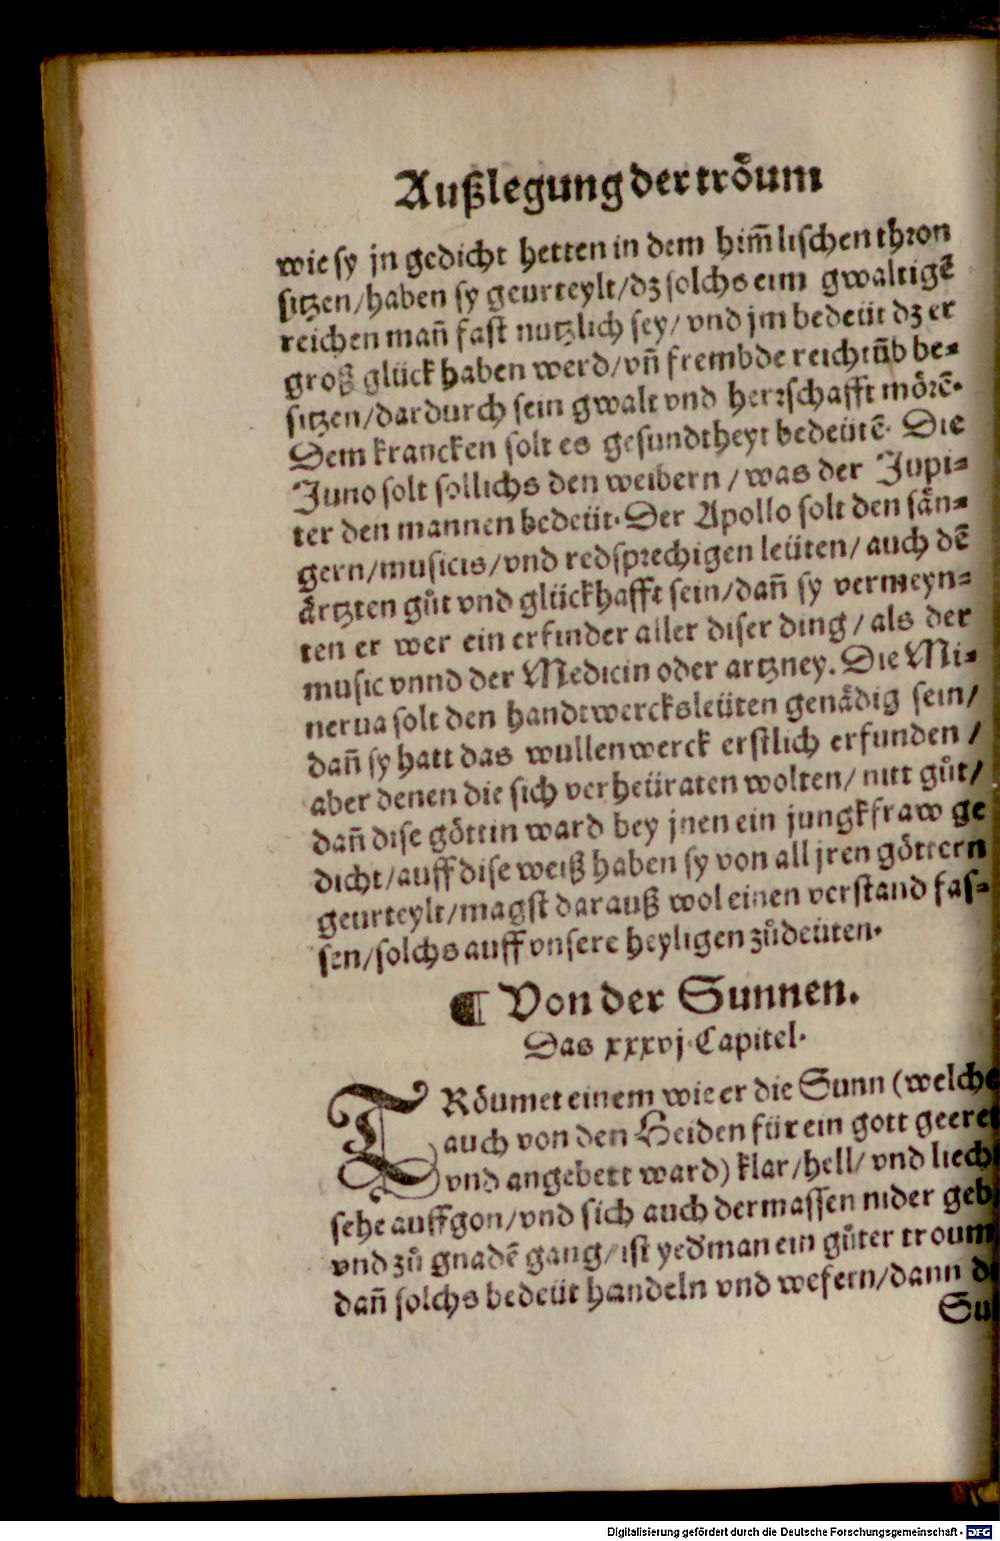 Außlegung der tröum
wie sy jn gedicht hetten in dem him̃lischen thron
sitzen/haben sy geurteylt/dz solchs eim gwaltigẽ
reichen mañ fast nutzlich sey/vnd jm bedeüt dz er
groß glück haben werd/vñ frembde reichtũb be⸗
sitzen/dardurch sein gwalt vnd herrschafft mörẽ.
Dem krancken solt es gesundtheyt bedeütẽ. Die
Juno solt sollichs den weibern/was der Jupi⸗
ter den mannen bedeüt. Der Apollo solt den sän⸗
gern/musicis/vnd redsprechigen leüten/auch dẽ
ärtzten gůt vnd glückhafft sein/dañ sy vermeyn⸗
ten er wer ein erfinder aller diser ding/als der
music vnnd der Medicin oder artzney. Die Mi⸗
nerua solt den handtwercksleüten genädig sein/
dañ sy hatt das wullenwerck erstlich erfunden/
aber denen die sich verheüraten wolten/nitt gůt/
dañ dise göttin ward bey jnen ein jungkfraw ge
dicht/auff dise weiß haben sy von all jren göttern
geurteylt/magst darauß wol einen verstand fas⸗
sen/solchs auff vnsere heyligen zůdeüten.
¶ Von der Sunnen.
Das xxxvj. Capitel.
TRöumet einem wie er die Sunn (welche
auch von den Heiden für ein gott geeret
vnd angebett ward) klar/hell/vnd liecht
sehe auffgon/vnd sich auch dermassen nider geb
vnd zů gnadẽ gang/ist yed'man ein gůter troum
dañ solchs bedeüt handeln vnd wesern/dann d
Su
Digitalisierung gefördert durch die Deutsche Forschungsgemeinschaft - DFG